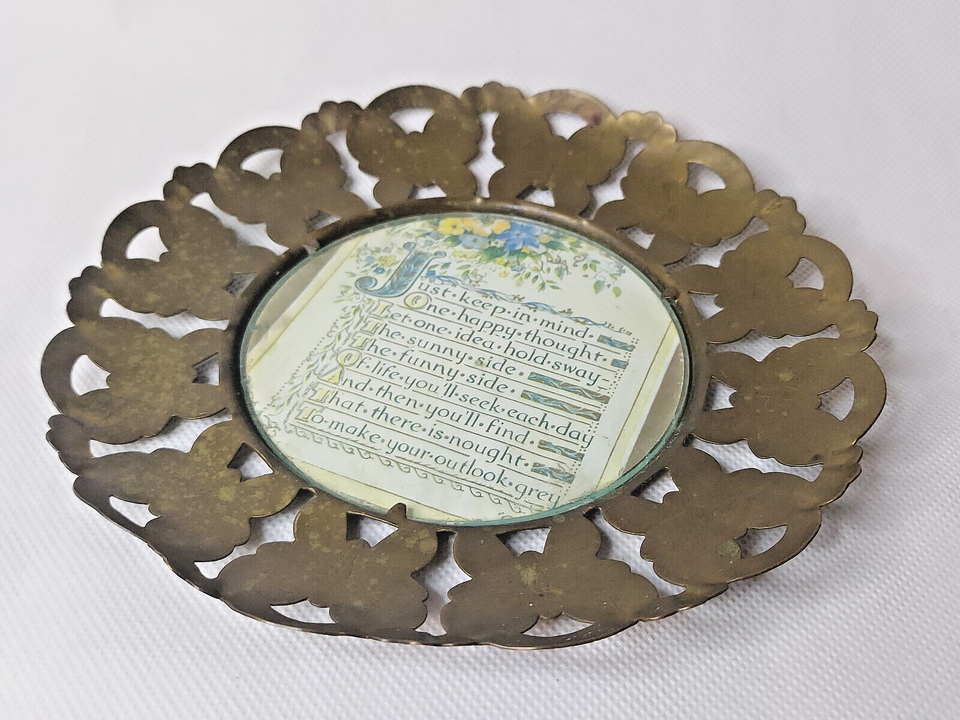 Just·keep·in·mind
One·happy·thought
Let·one·idea·hold·sway
The·sunny·side·
The·funny·side·
Of·life·you'll·seek·each·day
And·then·you'll·find·
That·there·is·nought·
To·make·your·outlook·grey